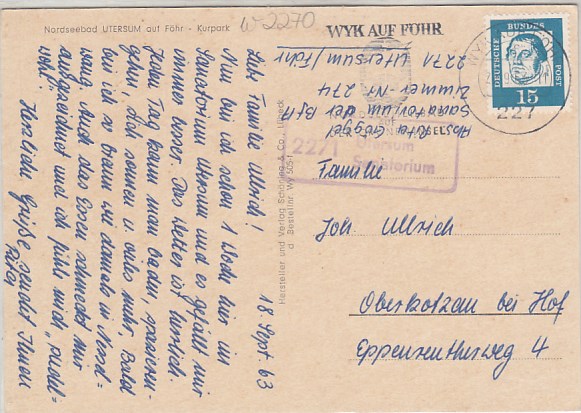 Nordseebad UTERSUM auf Föhr - Kurpark
W 2270
WYK AUF FÖHR
18. Sept. 63
Liebe Familie Ullrich!
Nun bin ich schon 1 Woche hier im
Sanatorium Utersum und es gefällt mir
immer besser. Das Wetter ist herrlich.
Jeden Tag kann man baden, spazieren-
gehen, sich sonnen u. vieles mehr. Bald
bin ich so braun wie damals in Nord-
Auch das Essen schmeckt mir
ausgezeichnet und ich fühle mich
wohl."
Herzliche Grüße sendet Ihnen
Rita
Hersteller und Verlag Schöning & Co., Lübeck
Bestellnr Wy 505
Abs. Rita
Sanatorium der BfA
Zimmer Nr. 274
2271 Utersum/Föhr
2271
Utersum
Sanatorium
DEUTSCHE BUNDES POST
15
227
Familie
Joh. Ullrich
Oberkotzau bei Hof
Eppenreutherweg 4